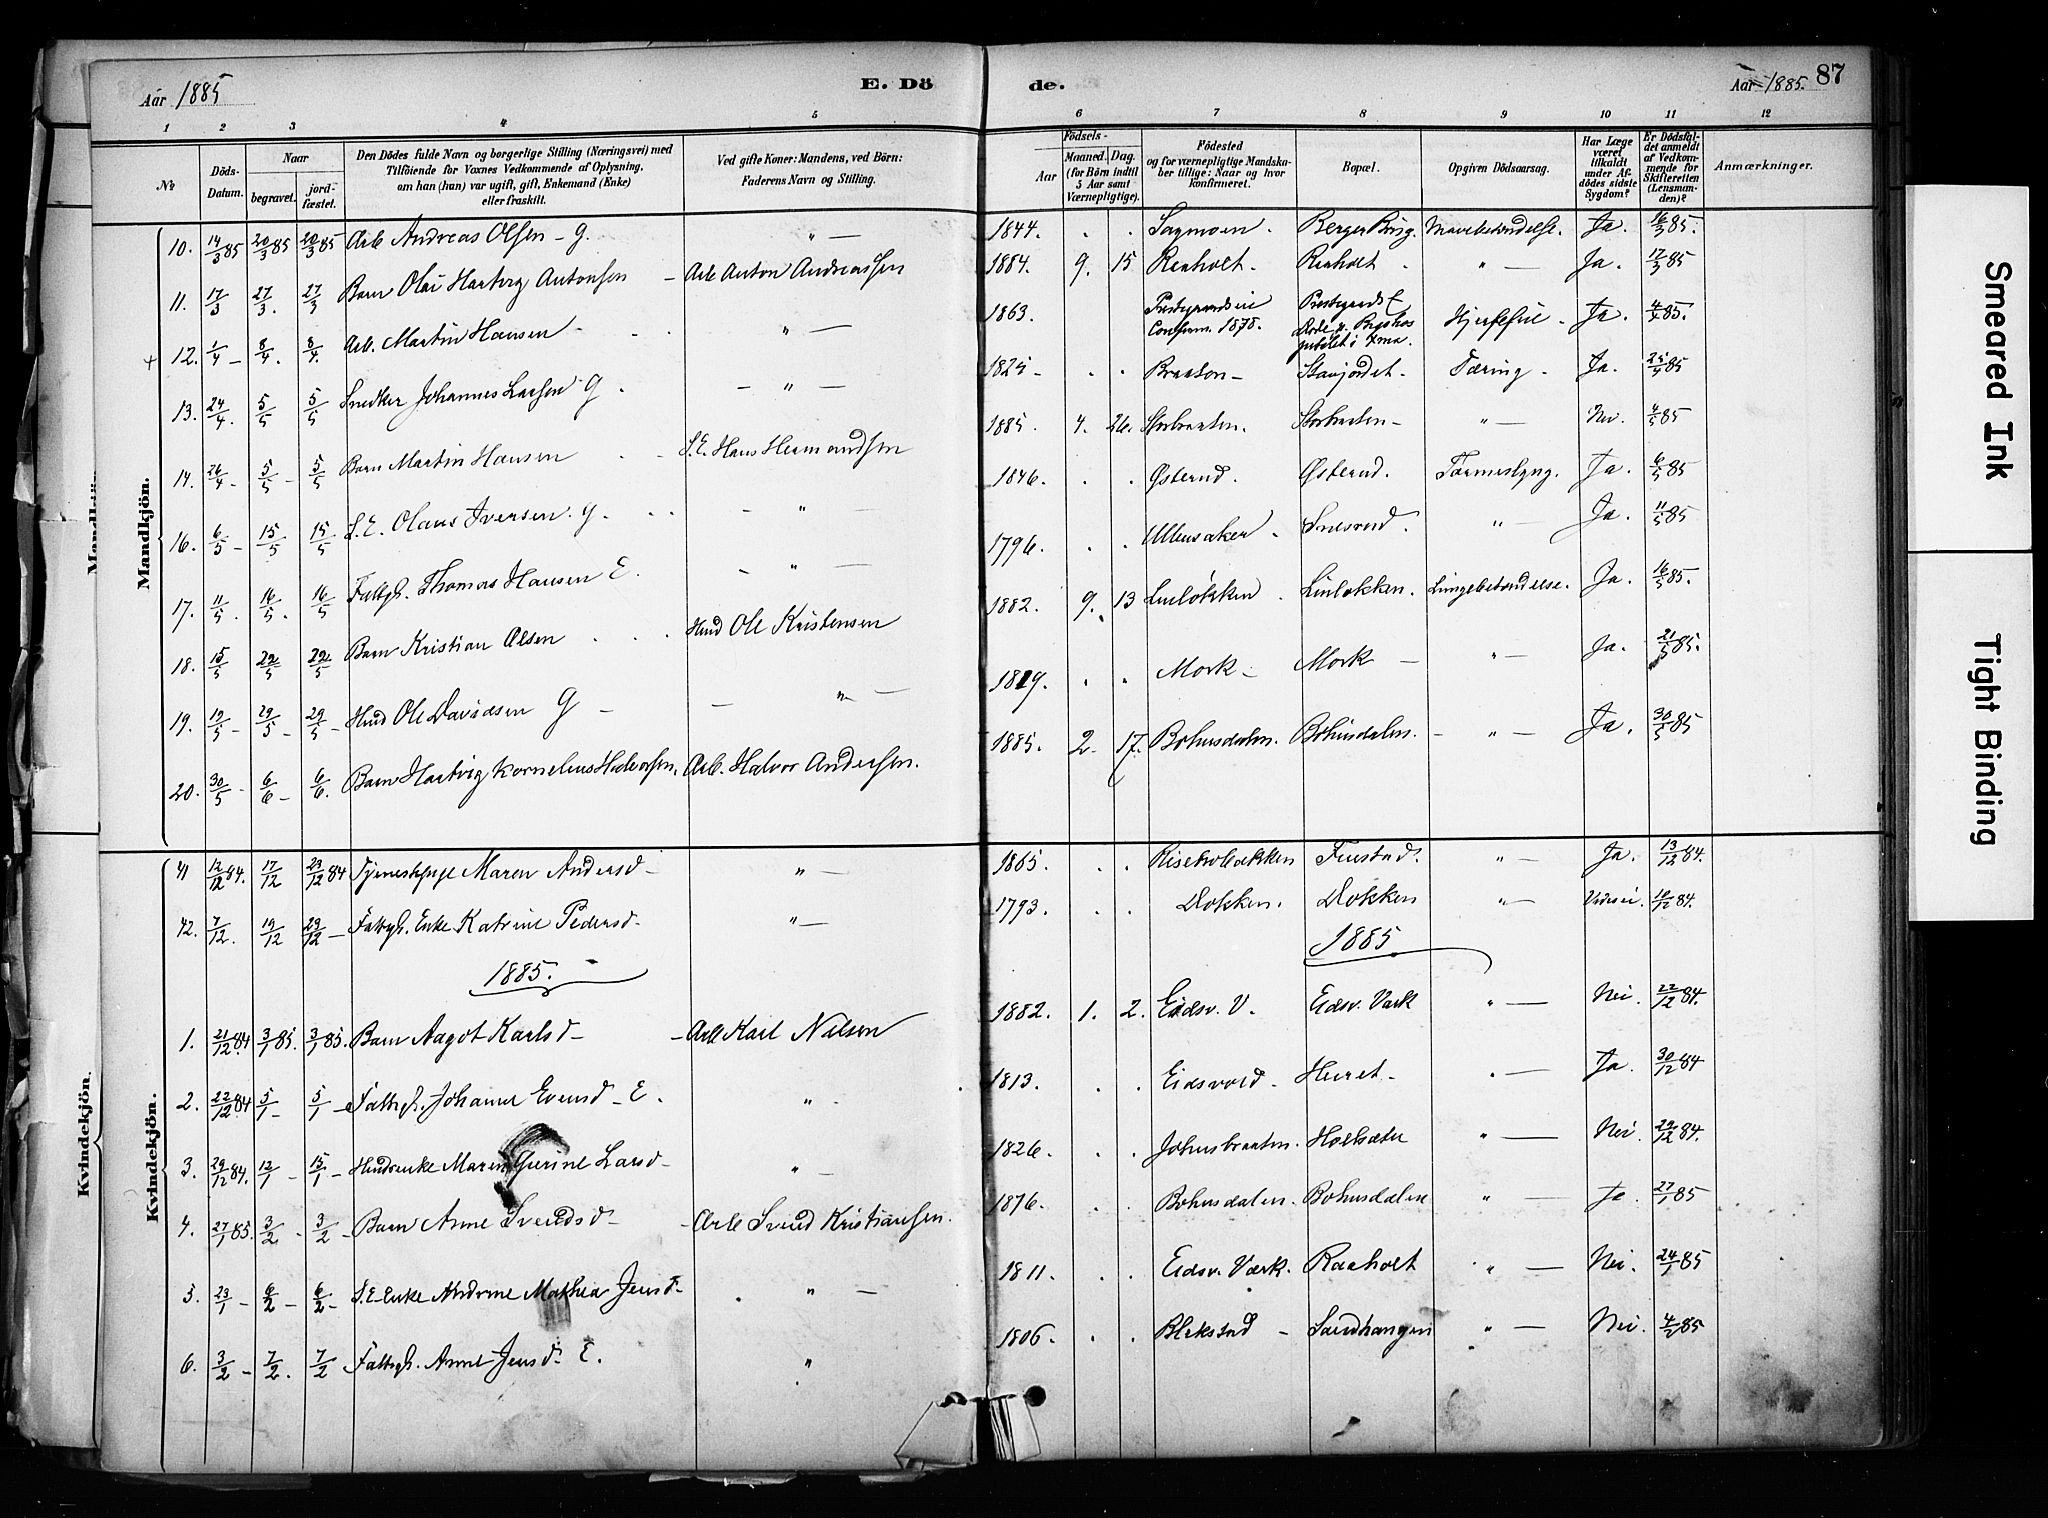 Aar 1885
E. Dö
de.
Aar 1885. 87
1 2 3 4 5 6 7 8 9 10 11 12
№
Döds-Datum.
Naar
begravet.
jord-fæstet.
Den Dödes fulde Navn og borgerlige Stilling (Næringsvei) med
Tilföiende for Voxnes Vedkommende af Oplysning,
om han (hun) var ugift, gift, Enkemand (Enke)
eller fraskilt.
Ved gifte Koner: Mandens, ved Börn:
Faderens Navn og Stilling.
Födsels-
Aar
Maaned. Dag.
(for Börn indtil
5 Aar samt
Værnepligtige).
Födested
og for værnepligtige Mandska-
ber tillige: Naar og hvor
konfirmeret.
Bopæl.
Opgiven Dödsaarsag.
Har Læge
været
tilkaldt
under Af-
dödes sidste
Sygdom?
Er Dödsfal-
det anmeldt
af Vedkom-
mende for
Skifteretten
(Lensman-
den)?
Anmærkninger.
Mandkjön.
10. 14/3 85 20/3 85 20/3 85 Arb Andreas Olsen - G. " — 1844. . . Sagmoen. Berger Brug. Mavebetændelse. Ja. 16/3 85.
11. 17/3 27/3. 27/3 Barn Olai Hartvig Antonsen - Arb Anton Andreassen 1884. 9. 15 Raaholt. Raaholt. " — Ja. 17/3 85
+ 12. 1/4 - 8/4. 8/4. Arb. Martin Hansen - " — 1863. Prestegaardseie Confirm. 1878. Hjertefeil - Ja. 4/4 85.
13. 24/4. 5/5 5/5 Snedker Johannes Larsen G. - " — 1825 - . . Braaten - Stavjordet. Tæring - Ja. 25/4 85
14. 26/4 - 5/5 - 5/5 Barn Martin Hansen S.E. Hans Hermandsen 1885. 4. 26. Storbraaten. Storbraaten - " — Nei. 4/5 85
16. 6/5 - 15/5 15/5 S.E. Olaus Iversen. G. - " — 1846. . . Østerud. Østerud. Ja. 6/5 85
17. 11/5. 16/5. 16/5 Fattigl. Thomas Hansen E. - " — 1796. . . Ullensaker - " — Ja. 11/5 85
18. 15/5 22/5 22/5 Barn Kristian Olsen Husd Ole Kristensen 1882. 9. 13 Linløkken. Linløkken. Lungebetændelse. Ja. 16/5 85.
19. 19/5 - 29/5 - 29/5 - Husd Ole Davidsen G - — " — 1819. . . Mork - Mork — " — Ja. 21/5 85.
20. 30/5 - 6/6 - 6/6. Barn Hartvig Kornelius Halvorsen. Arb. Halvor Andersen. 1885. 2. 17. Bohusdalen. Bohusdalen. - " — Ja. 30/5 85
Kvindekjön.
41 12/12 84. 17/12 23/12 84 Tjenestepige Maren Andersd - " — 1865. . . Finstad. " — Ja. 13/12 84.
42. 7/12. 19/12 29/12 - Fattigl. Enke Katrine Pedersd. " — 1793. . . Dokken. Dokken " — 16/12 84.
1885.
1885
1. 21/12 84. 3/1 85. 3/1 85. Barn Aagot Karlsd - - Arb Karl Nilsen 1882. 1. 2. Eidsv. V. Eidsv. Værk " — Nei. 22/12 84.
2. 22/12 84. 5/1 - 5/1 - Fattigl. Johanne Evensd - E. " . 1813. . . Eidsvold. Huret - . — Ja. 30/12 84
3. 29/12 84. 13/1 - 15/1 - Husdenke Maren Gurine Larsd - " — 1826. . . Johnsbraaten. Holsæter " — Nei. 29/12 84.
4. 27/1 85. 3/2 - 3/2 - Barn Anne Svendsd - - Arb Svend Kristiansen. 1876. . . Bohusdalen. Bohusdalen " — Ja. 27/1 85
5. 23/1 - 6/2 - 6/2 - S.E. Enke Andrine Mathea Jensd - " — 1811. . . Eidsv. Værk. Raaholt . " — Nei. 24/1 85
6. 3/2 - 7/2. 7/2 Fattigl. Anne Jensd. E. " 1806. . . Blekstad - Sandhangen " — Nei. 4/2 85
Mandkjön
Kvindekjön.
Smeared Ink
Tight Binding